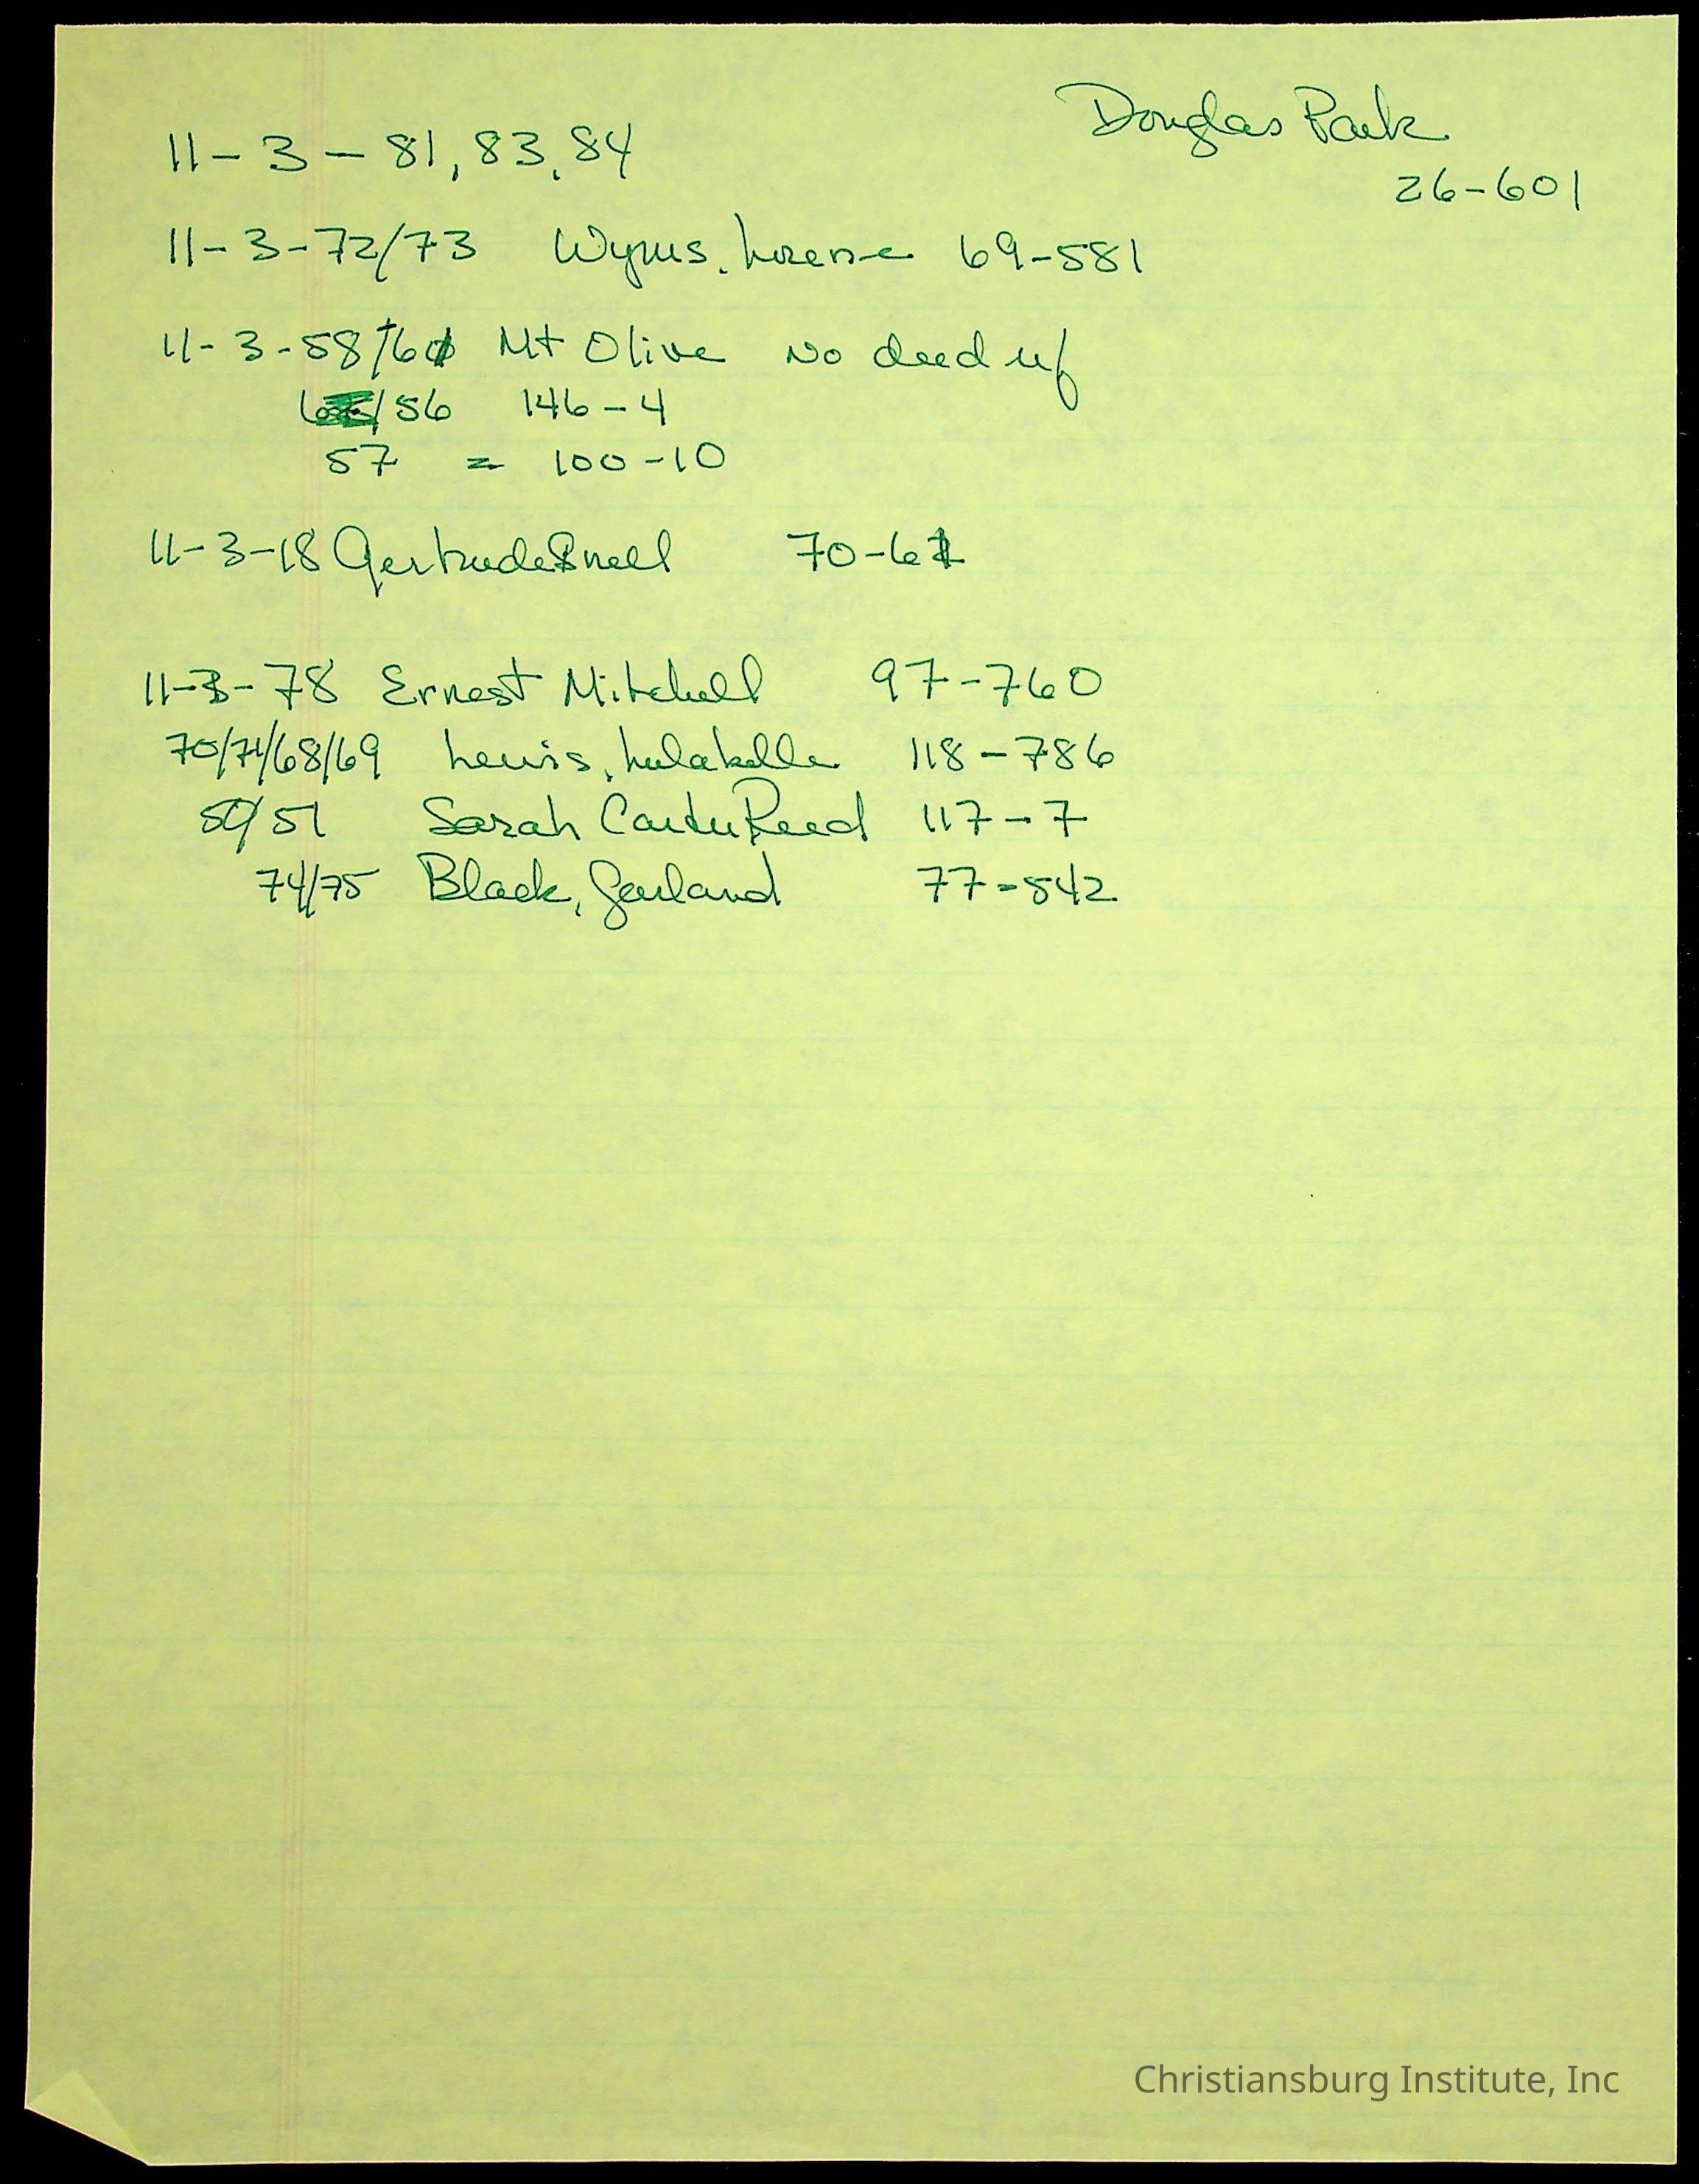 Douglas Park
26-601
11-3-81, 83, 84
11-3-72/73 Wynus, Lorene 69-581
11-3-58/60 Mt Olive No deed ref
/56 146-4
57 = 100-10
11-3-18 Gertrude Snell 70-61
11-3-78 Ernest Mitchell 97-760
70/71/68/69 Lewis, Lulabelle 118-786
50/51 Sarah Carter Reed 117-7
74/75 Black, Garland 77-542
Christiansburg Institute, Inc